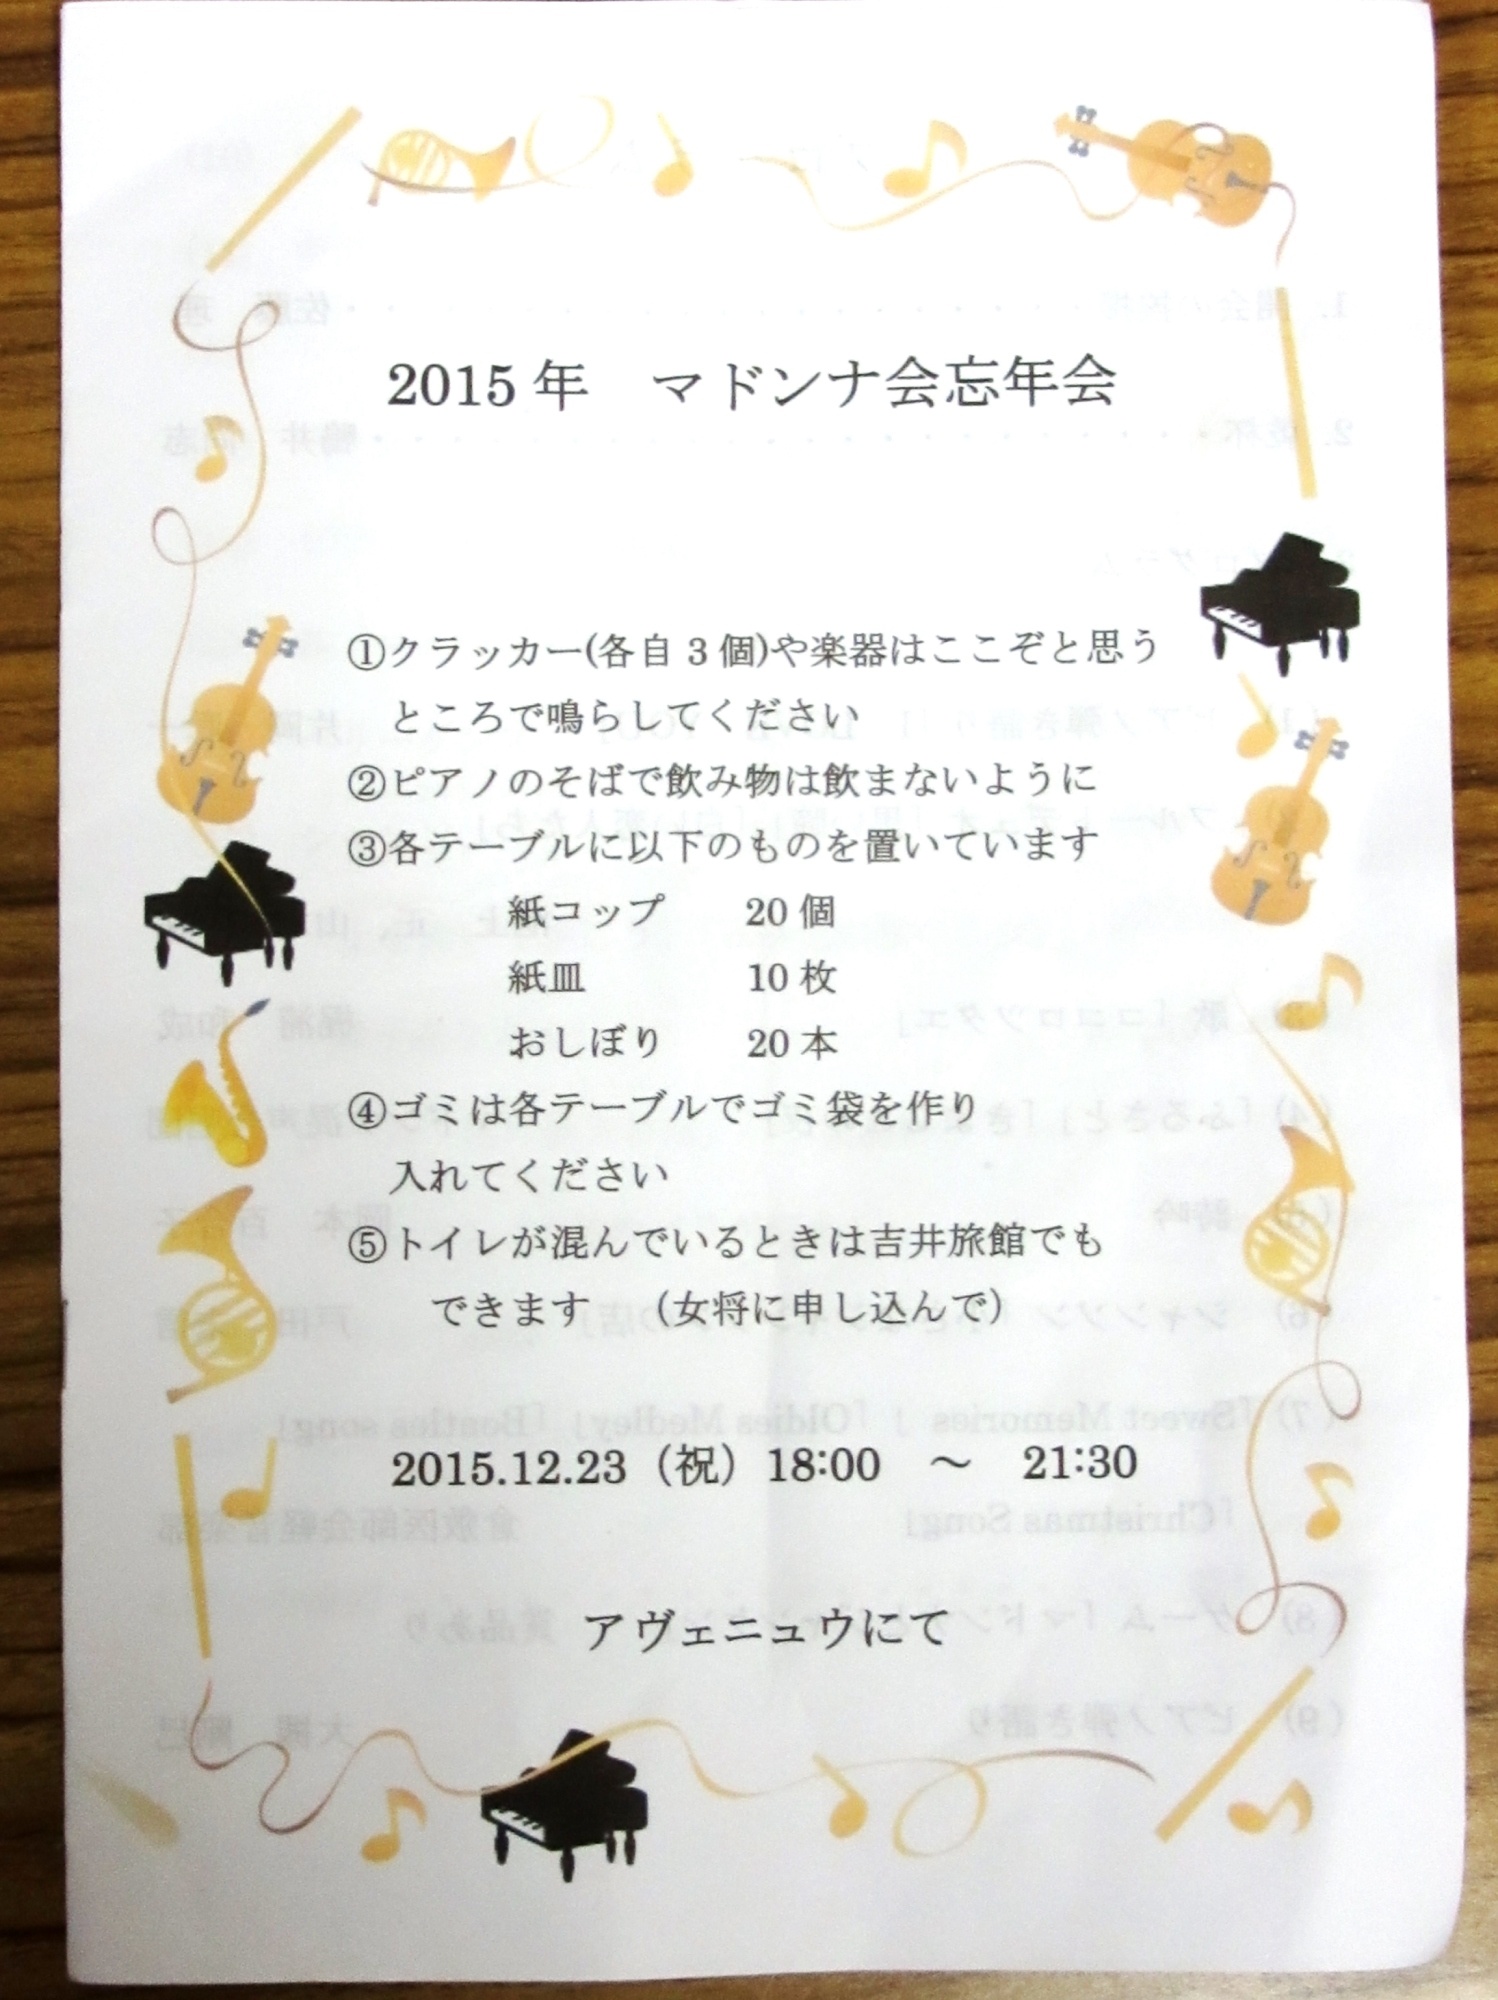 2015年　マドンナ会忘年会
①クラッカー(各自3個)や楽器はここぞと思う
ところで鳴らしてください
②ピアノのそばで飲み物は飲まないように
③各テーブルに以下のものを置いています
紙コップ　　20個
紙皿　　　　10枚
おしぼり　　20本
④ゴミは各テーブルでゴミ袋を作り
入れてください
⑤トイレが混んでいるときは吉井旅館でも
できます　（女将に申し込んで）
2015.12.23（祝）18:00　～　21:30
アヴェニュウにて